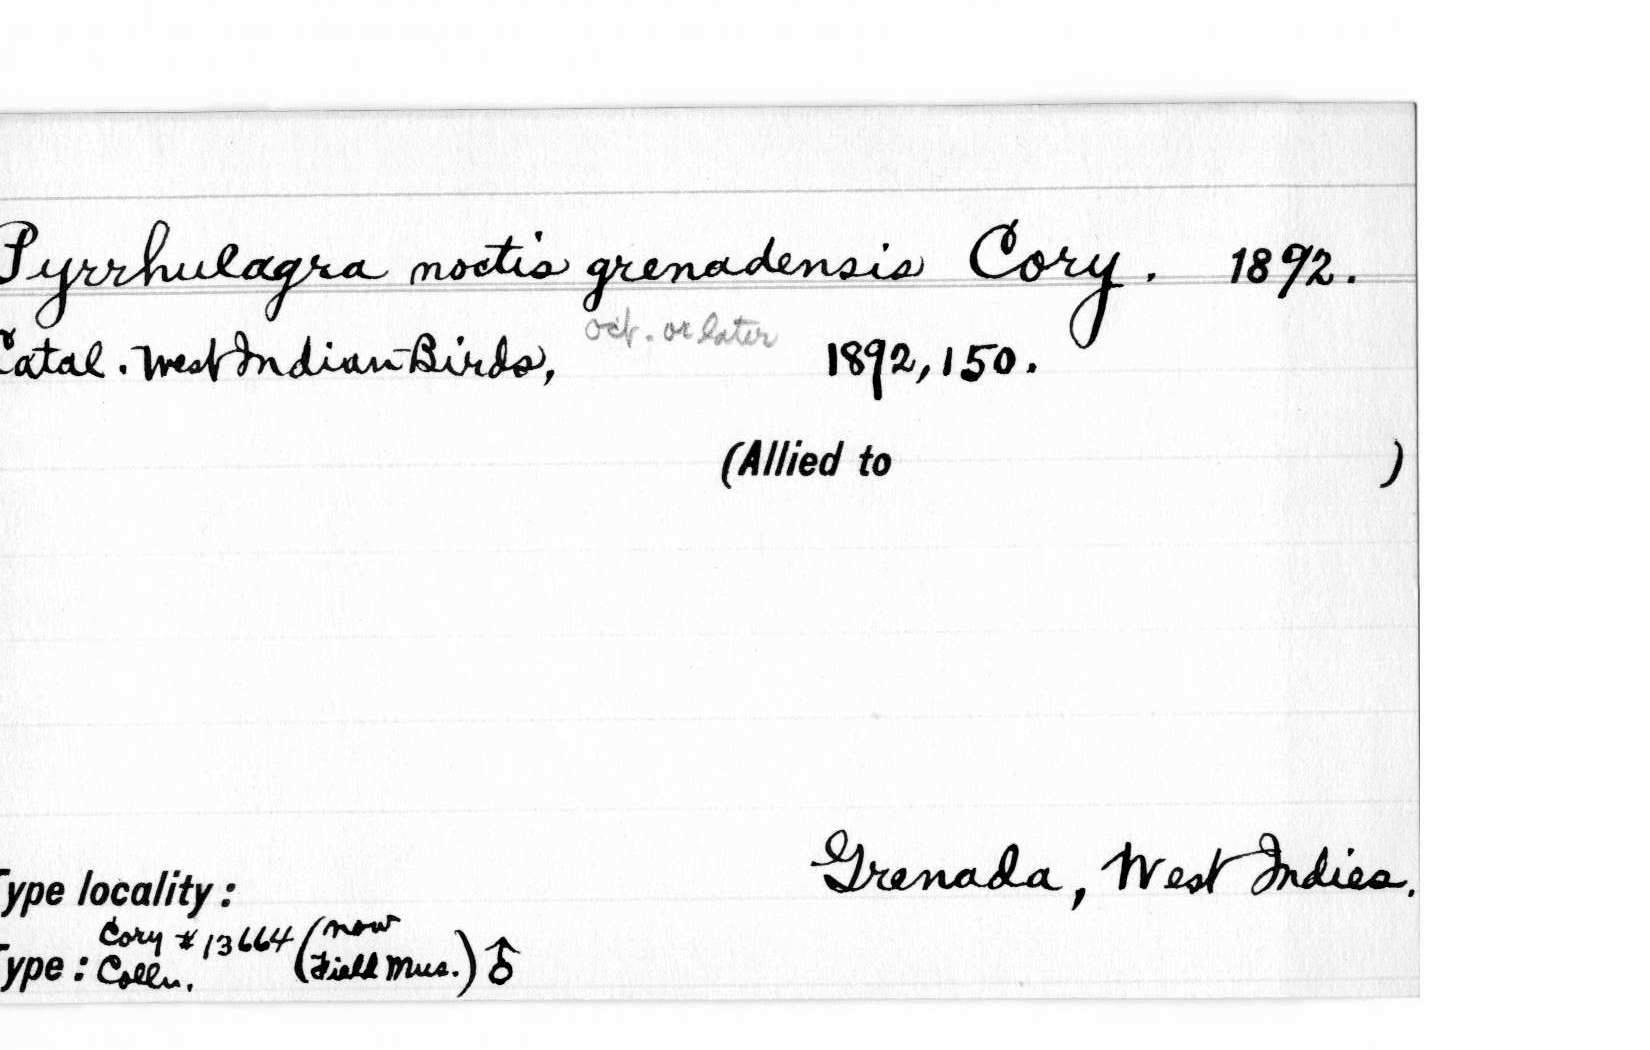 Pyrrhulagra noctis grenadensis Cory. 1892.
Catal. West Indian Birds, Oct. or later 1892, 150.
(Allied to )
Grenada, West Indies.
Type locality:
Type: Cory Colln. # 13664 (now Field Mus.) ♂